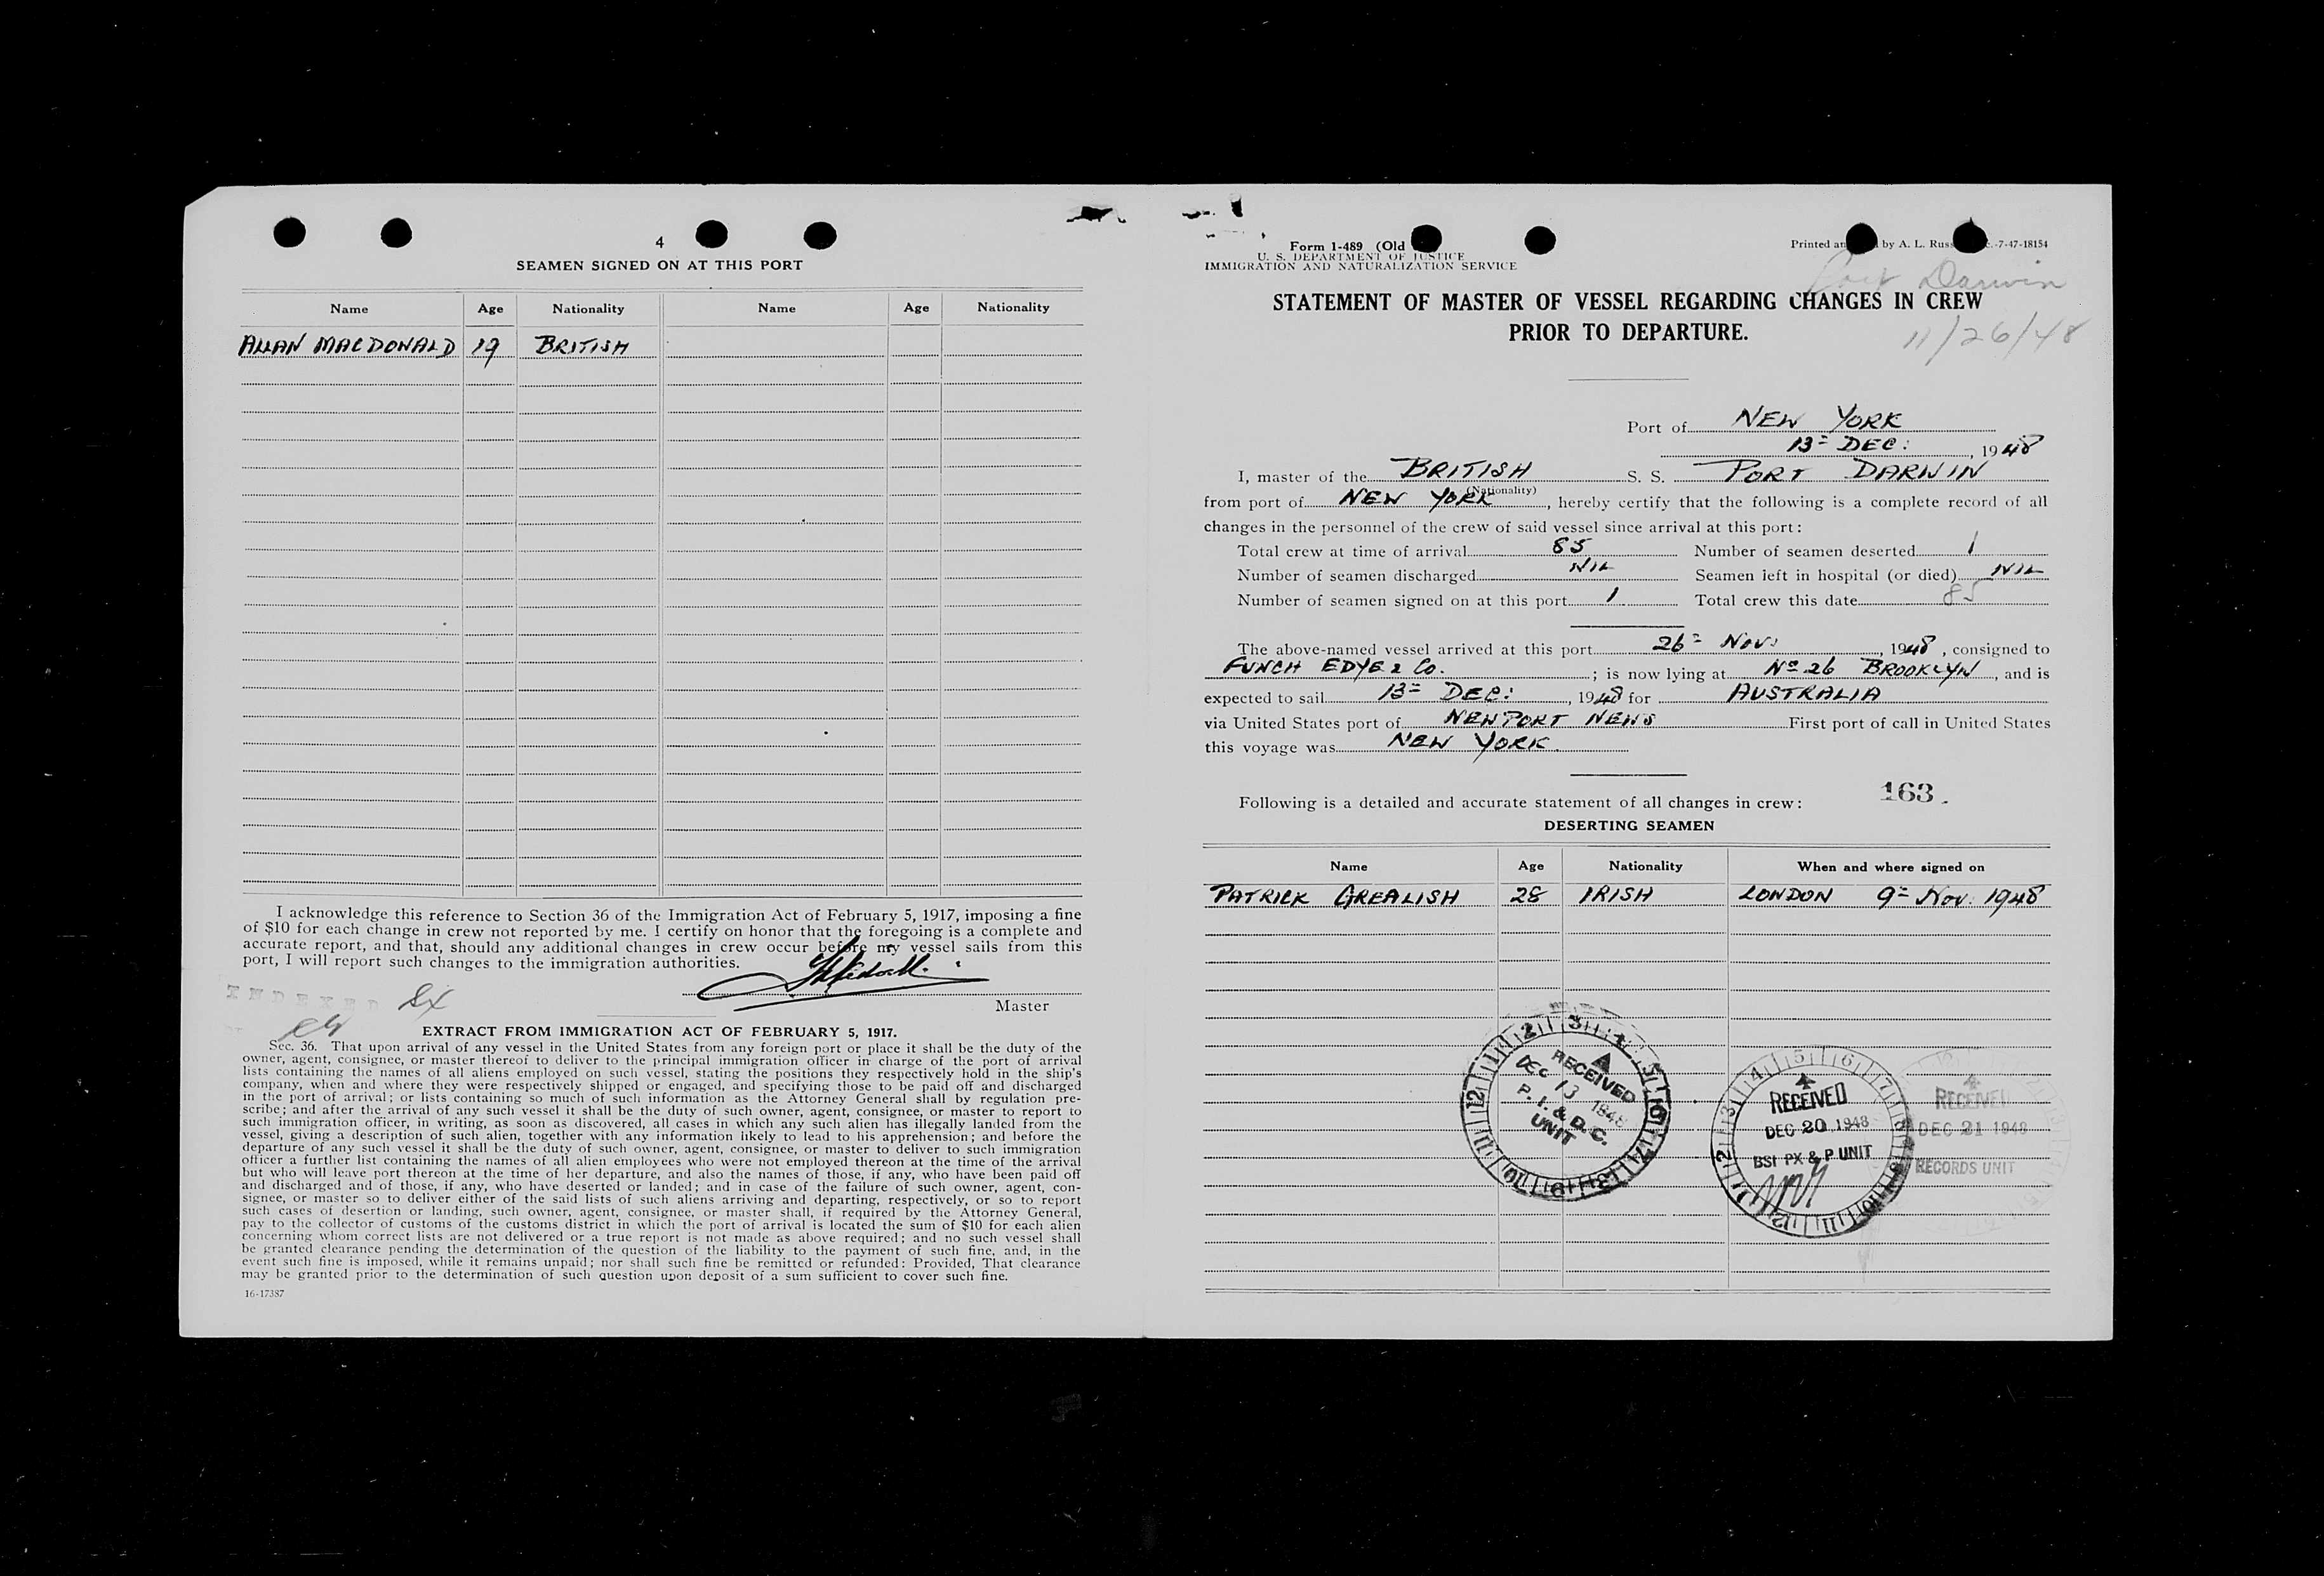 4
SEAMEN SIGNED ON AT THIS PORT
Name Age Nationality Name Age Nationality
ALLAN MACDONALD 19 BRITISH
I acknowledge this reference to Section 36 of the Immigration Act of February 5, 1917, imposing a fine
of $10 for each change in crew not reported by me. I certify on honor that the foregoing is a complete and
accurate report, and that, should any additional changes in crew occur before my vessel sails from this
port, I will report such changes to the immigration authorities.
INDEXED
Master
EXTRACT FROM IMMIGRATION ACT OF FEBRUARY 5, 1917.
Sec. 36. That upon arrival of any vessel in the United States from any foreign port or place it shall be the duty of the
owner, agent, consignee, or master thereof to deliver to the principal immigration officer in charge of the port of arrival
lists containing the names of all aliens employed on such vessel, stating the positions they respectively hold in the ship's
company, when and where they were respectively shipped or engaged, and specifying those to be paid off and discharged
in the port of arrival; or lists containing so much of such information as the Attorney General shall by regulation pre-
scribe; and after the arrival of any such vessel it shall be the duty of such owner, agent, consignee, or master to report to
such immigration officer, in writing, as soon as discovered, all cases in which any such alien has illegally landed from the
vessel, giving a description of such alien, together with any information likely to lead to his apprehension; and before the
departure of any such vessel it shall be the duty of such owner, agent, consignee, or master to deliver to such immigration
officer a further list containing the names of all alien employees who were not employed thereon at the time of the arrival
but who will leave port thereon at the time of her departure, and also the names of those, if any, who have been paid off
and discharged and of those, if any, who have deserted or landed; and in case of the failure of such owner, agent, con-
signee, or master so to deliver either of the said lists of such aliens arriving and departing, respectively, or so to report
such cases of desertion or landing, such owner, agent, consignee, or master shall, if required by the Attorney General,
pay to the collector of customs of the customs district in which the port of arrival is located the sum of $10 for each alien
concerning whom correct lists are not delivered or a true report is not made as above required; and no such vessel shall
be granted clearance pending the determination of the question of the liability to the payment of such fine, and, in the
event such fine is imposed, while it remains unpaid; nor shall such fine be remitted or refunded: Provided, That clearance
may be granted prior to the determination of such question upon deposit of a sum sufficient to cover such fine.
16-17387
Form 1-489 (Old
U. S. DEPARTMENT OF JUSTICE
IMMIGRATION AND NATURALIZATION SERVICE
Printed an by A. L. Russ c.-7-47-18154
Port Darwin
STATEMENT OF MASTER OF VESSEL REGARDING CHANGES IN CREW
PRIOR TO DEPARTURE.
11/26/48
Port of NEW YORK
13= DEC: , 1948
I, master of the BRITISH S. S. PORT DARWIN
(Nationality)
from port of NEW YORK , hereby certify that the following is a complete record of all
changes in the personnel of the crew of said vessel since arrival at this port:
Total crew at time of arrival 85 Number of seamen deserted 1
Number of seamen discharged NIL Seamen left in hospital (or died) NIL
Number of seamen signed on at this port 1 Total crew this date 85
The above-named vessel arrived at this port 26= Nov: , 1948 , consigned to
FUNCH EDYE & Co. ; is now lying at No 26 BROOKLYN , and is
expected to sail 13= DEC: , 1948 for AUSTRALIA
via United States port of NEWPORT NEWS First port of call in United States
this voyage was NEW YORK.
163
Following is a detailed and accurate statement of all changes in crew:
DESERTING SEAMEN
Name Age Nationality When and where signed on
PATRICK GREALISH 28 IRISH LONDON 9= Nov. 1948
RECEIVED
DEC 13 1948
P. I. & D. C.
UNIT
RECEIVED
DEC 20 1948
BSI PX & P UNIT
RECEIVED
DEC 21 1948
RECORDS UNIT